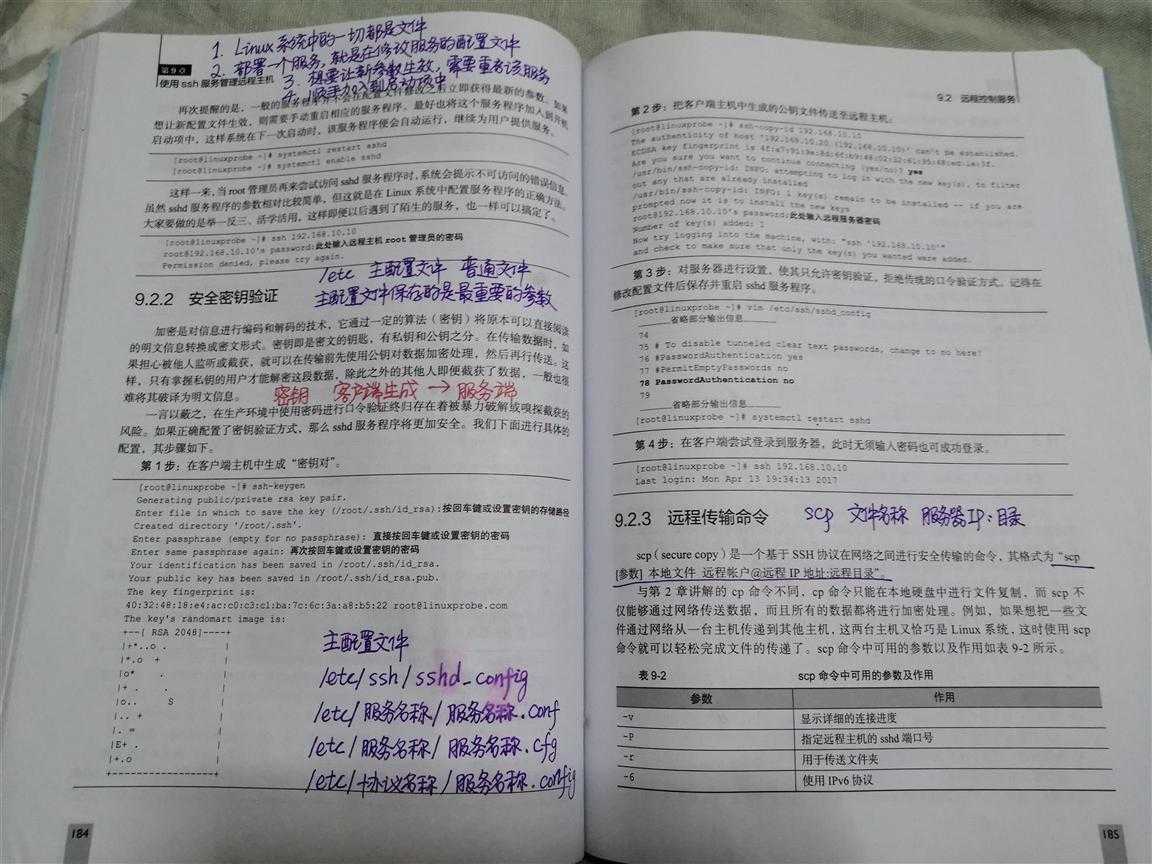 1. Linux系统中的一切都是文件
2. 部署一个服务,就是在修改服务的配置文件
3. 想要让新参数生效,需要重启该服务
4. 顺手加入到启动项中
第9章
使用 ssh 服务管理远程主机
再次提醒的是,一般的服务程序并不会在配置文件修改之后立即获得最新的参数。如果
想让新配置文件生效,则需要手动重启相应的服务程序。最好也将这个服务程序加入到开机
启动项中,这样系统在下一次启动时,该服务程序便会自动运行,继续为用户提供服务。
[root@linuxprobe ~]# systemctl restart sshd
[root@linuxprobe ~]# systemctl enable sshd
这样一来,当 root 管理员再来尝试访问 sshd 服务程序时,系统会提示不可访问的错误信息。
虽然 sshd 服务程序的参数相对比较简单,但这就是在 Linux 系统中配置服务程序的正确方法。
大家要做的是举一反三、活学活用,这样即便以后遇到了陌生的服务,也一样可以搞定了。
[root@linuxprobe ~]# ssh 192.168.10.10
root@192.168.10.10's password:此处输入远程主机 root 管理员的密码
Permission denied, please try again.
/etc 主配置文件 普通文件
主配置文件保存的是最重要的参数
9.2.2 安全密钥验证
加密是对信息进行编码和解码的技术,它通过一定的算法(密钥)将原本可以直接阅读
的明文信息转换成密文形式。密钥即是密文的钥匙,有私钥和公钥之分。在传输数据时,如
果担心被他人监听或截获,就可以在传输前先使用公钥对数据加密处理,然后再行传送。这
样,只有掌握私钥的用户才能解密这段数据,除此之外的其他人即便截获了数据,一般也很
难将其破译为明文信息。
密钥 客户端生成 → 服务端
一言以蔽之,在生产环境中使用密码进行口令验证终归存在着被暴力破解或嗅探截获的
风险。如果正确配置了密钥验证方式,那么 sshd 服务程序将更加安全。我们下面进行具体的
配置,其步骤如下。
第 1 步:在客户端主机中生成“密钥对”。
[root@linuxprobe ~]# ssh-keygen
Generating public/private rsa key pair.
Enter file in which to save the key (/root/.ssh/id_rsa):按回车键或设置密钥的存储路径
Created directory '/root/.ssh'.
Enter passphrase (empty for no passphrase): 直接按回车键或设置密钥的密码
Enter same passphrase again: 再次按回车键或设置密钥的密码
Your identification has been saved in /root/.ssh/id_rsa.
Your public key has been saved in /root/.ssh/id_rsa.pub.
The key fingerprint is:
40:32:48:18:e4:ac:c0:c3:c1:ba:7c:6c:3a:a8:b5:22 root@linuxprobe.com
The key's randomart image is:
+--[ RSA 2048]----+
|+*..o . |
|*.o + |
|o* . |
|+ . . |
|o.. S |
|.. + |
|. = |
|E+ . |
|+.o |
+-----------------+
主配置文件
/etc/ssh/sshd_config
/etc/服务名称/服务名称.conf
/etc/服务名称/服务名称.cfg
/etc/+协议名称/服务名称.config
184
9.2 远程控制服务
第 2 步:把客户端主机中生成的公钥文件传送至远程主机:
[root@linuxprobe ~]# ssh-copy-id 192.168.10.10
The authenticity of host '192.168.10.20 (192.168.10.10)' can't be established.
ECDSA key fingerprint is
Are you sure you want to continue connecting (yes/no)? yes
/usr/bin/ssh-copy-id: INFO: attempting to log in with the new key(s), to filter
out any that are already installed
/usr/bin/ssh-copy-id: INFO: 1 key(s) remain to be installed -- if you are
prompted now it is to install the new keys
root@192.168.10.10's password:此处输入远程服务器密码
Number of key(s) added: 1
Now try logging into the machine, with: "ssh '192.168.10.10'"
and check to make sure that only the key(s) you wanted were added.
第 3 步:对服务器进行设置,使其只允许密钥验证,拒绝传统的口令验证方式。记得在
修改配置文件后保存并重启 sshd 服务程序。
[root@linuxprobe ~]# vim /etc/ssh/sshd_config
省略部分输出信息
74
75 # To disable tunneled clear text passwords, change to no here!
76 #PasswordAuthentication yes
77 #PermitEmptyPasswords no
78 PasswordAuthentication no
79
省略部分输出信息
[root@linuxprobe ~]# systemctl restart sshd
第 4 步:在客户端尝试登录到服务器,此时无须输入密码也可成功登录。
[root@linuxprobe ~]# ssh 192.168.10.10
Last login: Mon Apr 13 19:34:13 2017
9.2.3 远程传输命令
scp 文件名称 服务器IP:目录
scp(secure copy)是一个基于 SSH 协议在网络之间进行安全传输的命令,其格式为“scp
[参数] 本地文件 远程帐户@远程 IP 地址:远程目录”。
与第 2 章讲解的 cp 命令不同,cp 命令只能在本地硬盘中进行文件复制,而 scp 不
仅能够通过网络传送数据,而且所有的数据都将进行加密处理。例如,如果想把一些文
件通过网络从一台主机传递到其他主机,这两台主机又恰巧是 Linux 系统,这时使用 scp
命令就可以轻松完成文件的传递了。scp 命令中可用的参数以及作用如表 9-2 所示。
表 9-2 scp 命令中可用的参数及作用
参数 作用
-v 显示详细的连接进度
-P 指定远程主机的 sshd 端口号
-r 用于传送文件夹
-6 使用 IPv6 协议
185